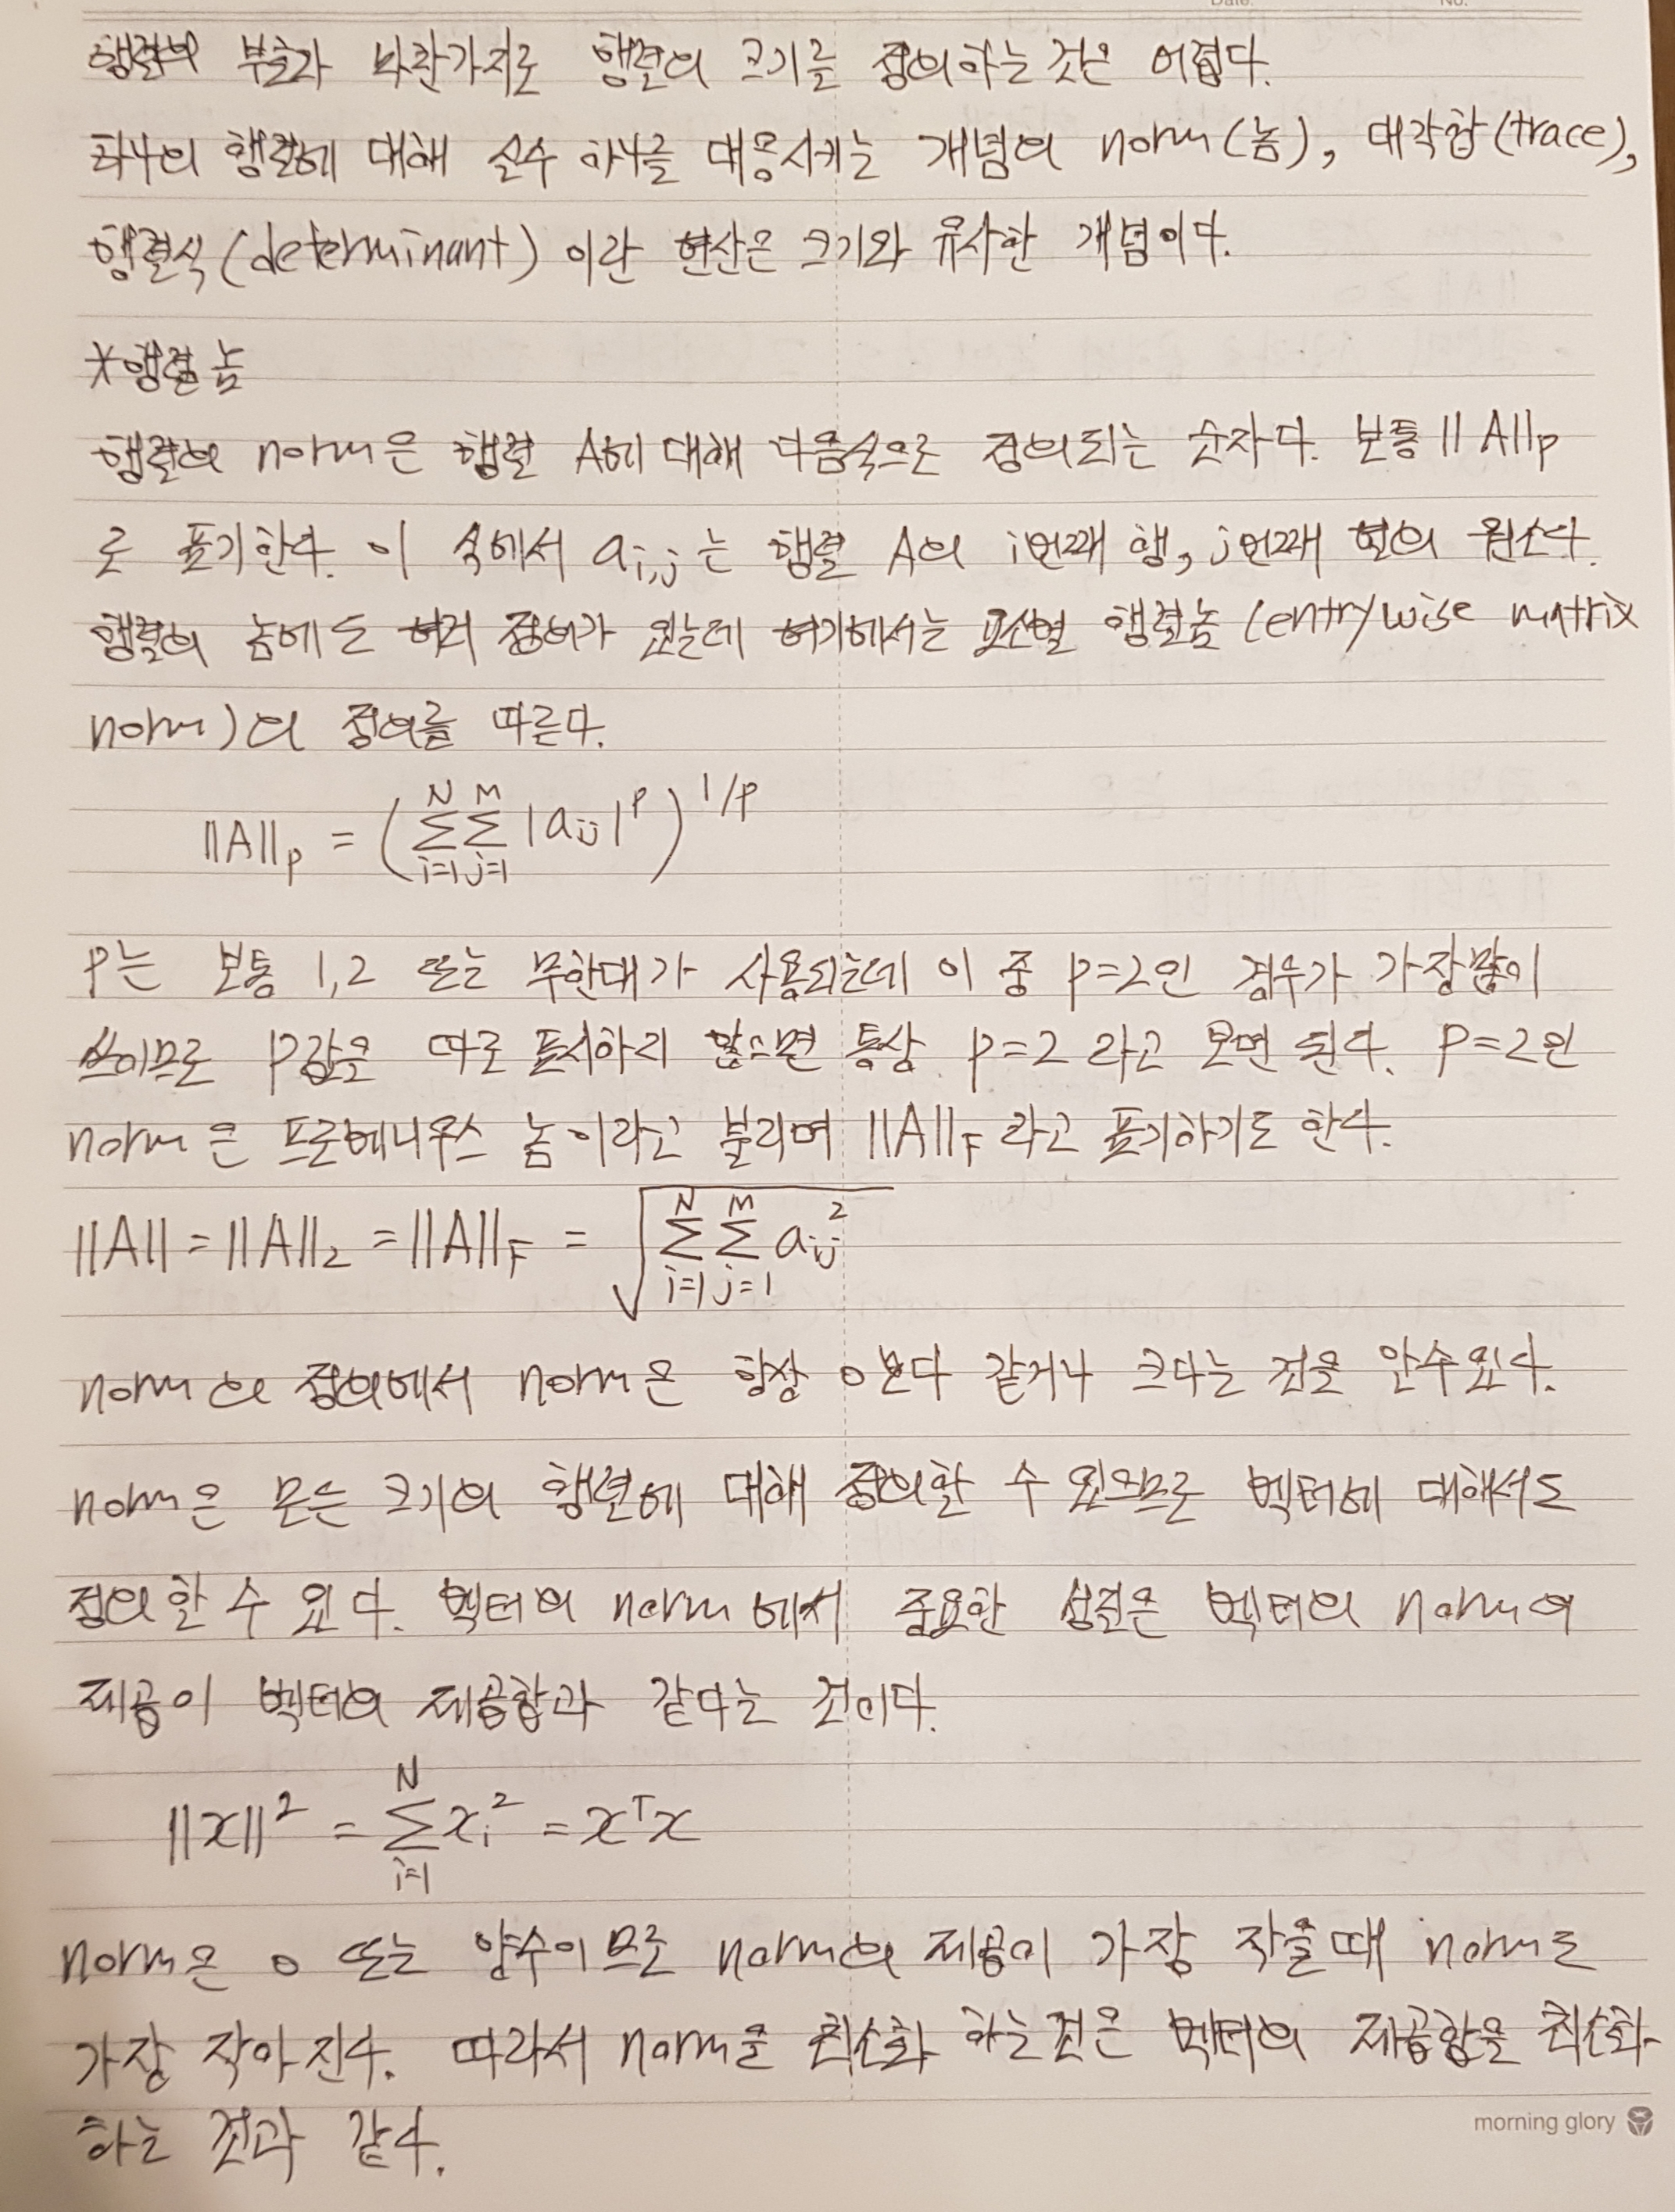 행렬의 부호와 마찬가지로 행렬의 크기를 정의하는 것은 어렵다.
하나의 행렬에 대해 실수 하나를 대응시키는 개념의 norm(놈), 대각합(trace),
행렬식(determinant)이란 연산은 크기와 유사한 개념이다.
*행렬 놈
행렬의 norm은 행렬 A에 대해 다음식으로 정의되는 숫자다. 보통 ||A||p
로 표기한다. 이 식에서 ai,j는 행렬 A의 i번째 행, j번째 열의 원소다.
행렬의 놈에도 여러 정의가 있는데 여기에서는 요소별 행렬놈 (entrywise matrix
norm)의 정의를 따른다.
||A||p = (∑∑|aij|^p)^1/p N M i=1 j=1
p는 보통 1,2 또는 무한대가 사용되는데 이 중 p=2인 경우가 가장많이
쓰이므로 p값을 따로 표시하지 않으면 통상 p=2 라고 보면 된다. p=2인
norm은 프로베니우스 놈이라고 불리며 ||A||F 라고 표기하기도 한다.
||A|| = ||A||2 = ||A||F = √∑∑aij² N M i=1 j=1
norm의 정의에서 norm은 항상 0보다 같거나 크다는 것을 알수있다.
norm은 모든 크기의 행렬에 대해 정의할 수 있으므로 벡터에 대해서도
정의할 수 있다. 벡터의 norm에서 중요한 성질은 벡터의 norm의
제곱이 벡터의 제곱합과 같다는 것이다.
||x||² = ∑xi² = xᵀx N i=1
norm은 0 또는 양수이므로 norm의 제곱이 가장 작을때 norm도
가장 작아진다. 따라서 norm을 최소화 하는것은 벡터의 제곱합을 최소화
하는 것과 같다.
morning glory